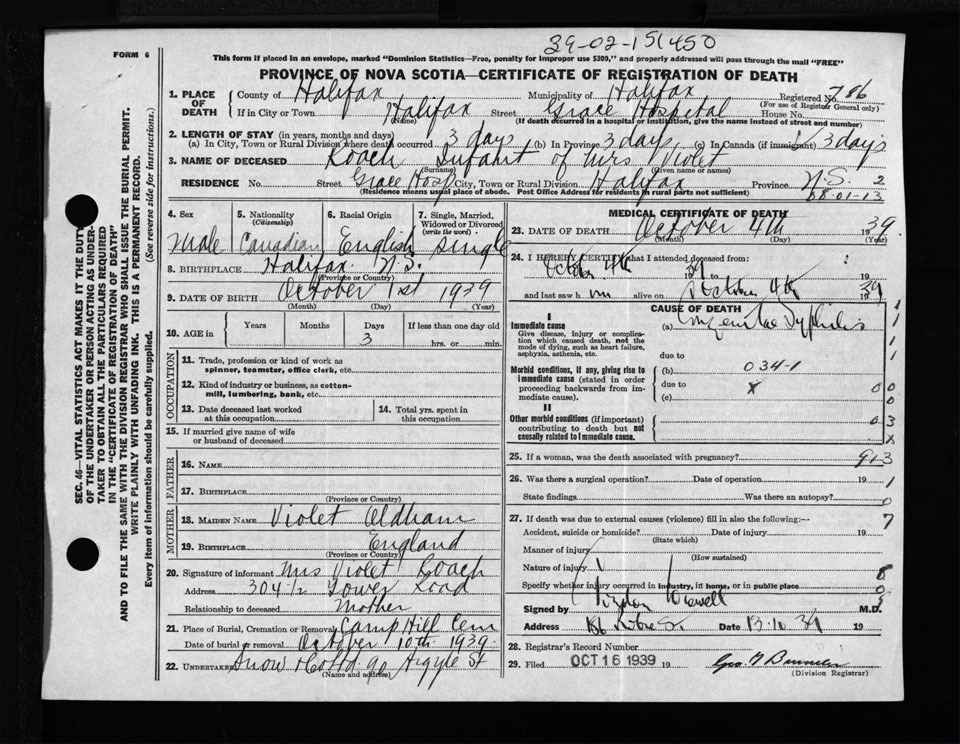 39-02-151450
FORM 6
This form if placed in an envelope, marked "Dominion Statistics—Free, penalty for improper use $300," and properly addressed will pass through the mail "FREE"
PROVINCE OF NOVA SCOTIA—CERTIFICATE OF REGISTRATION OF DEATH
1. PLACE OF DEATH County of Halifax Municipality of Halifax Registered No. 786
(For use of Registrar General only)
If in City or Town Halifax Street Grace Hospital House No.
(Name) (If death occurred in a hospital or institution, give the name instead of street and number)
2. LENGTH OF STAY (in years, months and days)
(a) In City, Town or Rural Division where death occurred 3 days (b) In Province 3 days (c) In Canada (if immigrant) 3 days
3. NAME OF DECEASED Roach Infant of Mrs Violet
(Surname) (Given name or names)
RESIDENCE No. Street Grace Hosp City, Town or Rural Division Halifax Province N.S. 2
(Residence means usual place of abode. Post Office Address for Residents in rural parts not sufficient) 68-01-13
4. Sex 5. Nationality (Citizenship) 6. Racial Origin 7. Single, Married, Widowed or Divorced (write the word)
Male Canadian English Single
8. BIRTHPLACE Halifax N.S.
(Province or Country)
9. DATE OF BIRTH October 1st 1939
(Month) (Day) (Year)
10. AGE in Years Months Days If less than one day old
3 hrs. or min.
OCCUPATION
11. Trade, profession or kind of work as spinner, teamster, office clerk, etc.
12. Kind of industry or business, as cotton-mill, lumbering, bank, etc.
13. Date deceased last worked at this occupation
14. Total yrs. spent in this occupation
15. If married give name of wife or husband of deceased
FATHER
16. NAME
17. BIRTHPLACE
(Province or Country)
MOTHER
18. MAIDEN NAME Violet Oldham
19. BIRTHPLACE England
(Province or Country)
20. Signature of informant Mrs Violet Roach
Address 304 1/2 Tower Road
Relationship to deceased Mother
21. Place of Burial, Cremation or Removal Camp Hill Cem
Date of burial or removal October 10th 1939
22. UNDERTAKER Snow & Co Ltd 90 Argyle St
(Name and address)
MEDICAL CERTIFICATE OF DEATH
23. DATE OF DEATH October 4th 1939
(Month) (Day) (Year)
24. I HEREBY CERTIFY that I attended deceased from:
October 4th 19 39 to 19
and last saw h im alive on October 4th 19 39
CAUSE OF DEATH
I
Immediate cause (a) Congenital Syphilis
Give disease, injury or complication which caused death, not the mode of dying, such as heart failure, asphyxia, asthenia, etc.
due to
Morbid conditions, if any, giving rise to immediate cause (stated in order proceeding backwards from immediate cause).
(b) 034-1
due to x
(c)
II
Other morbid conditions (if important) contributing to death but not causally related to immediate cause.
1
1
1
1
0 0
0
0 3
x
25. If a woman, was the death associated with pregnancy? 913
26. Was there a surgical operation? Date of operation 19 1
State findings Was there an autopsy? 0
27. If death was due to external causes (violence) fill in also the following:— 7
Accident, suicide or homicide? Date of injury 19
(State which)
Manner of injury
(How sustained)
Nature of injury 8
Specify whether injury occurred in industry, in home, or in public place 0
Signed by M.D. 8
Address Date 13.10.39 19
28. Registrar's Record Number
29. Filed OCT 16 1939 19
(Division Registrar)
SEC. 46—VITAL STATISTICS ACT MAKES IT THE DUTY
OF THE UNDERTAKER OR PERSON ACTING AS UNDER-
TAKER TO OBTAIN ALL THE PARTICULARS REQUIRED
IN THE "CERTIFICATE OF REGISTRATION OF DEATH"
AND TO FILE THE SAME WITH THE DIVISION REGISTRAR WHO SHALL ISSUE THE BURIAL PERMIT.
WRITE PLAINLY WITH UNFADING INK. THIS IS A PERMANENT RECORD.
Every item of information should be carefully supplied. (See reverse side for instructions.)